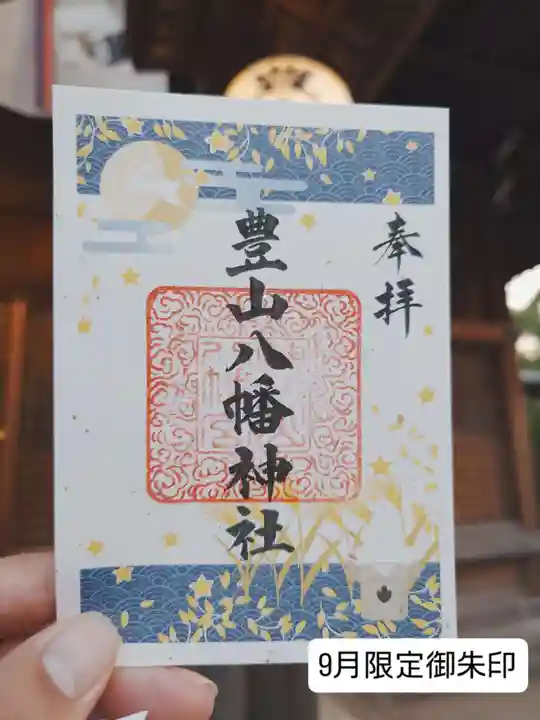 奉拝
豊山八幡神社
9月限定御朱印